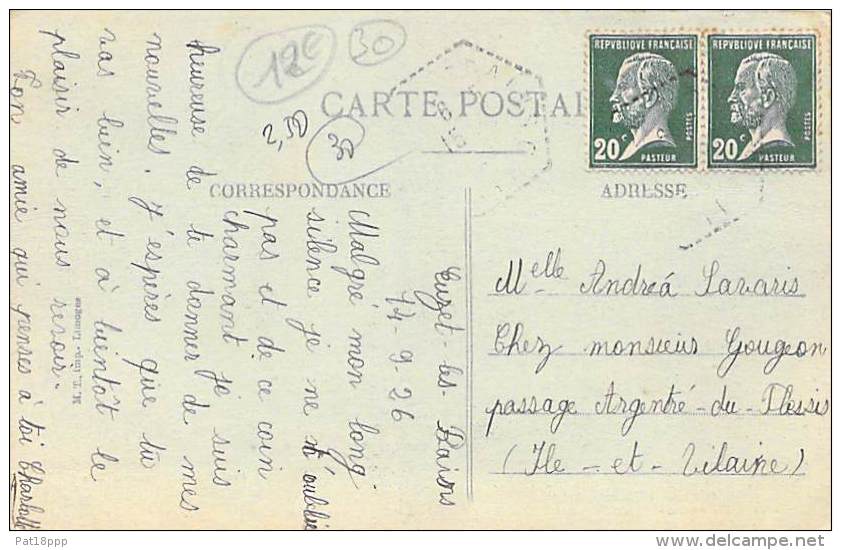 CARTE POSTA
CORRESPONDANCE
ADRESSE
REPVBLIQUE FRANÇAISE
20
PASTEUR
POSTES
REPVBLIQUE FRANÇAISE
20
PASTEUR
POSTES
12€
30
2,50
30
Euzet-les-Bains
14-9-26
Malgré mon long
silence je ne t'oublie
pas et de ce coin
charmant je suis
heureuse de te donner de mes
nouvelles. J'éspères que tu
vas bien, et à bientôt le
plaisir de nous revoir.
Ton amie qui penses à toi Charlotte
Melle Andréa Savaris
Chez monsieur Gougeon
passage Argentré-du-Plessis
(Ile-et-Vilaine)
M. T. imp. - Limoges
Pat18ppp
www.delcampe.net